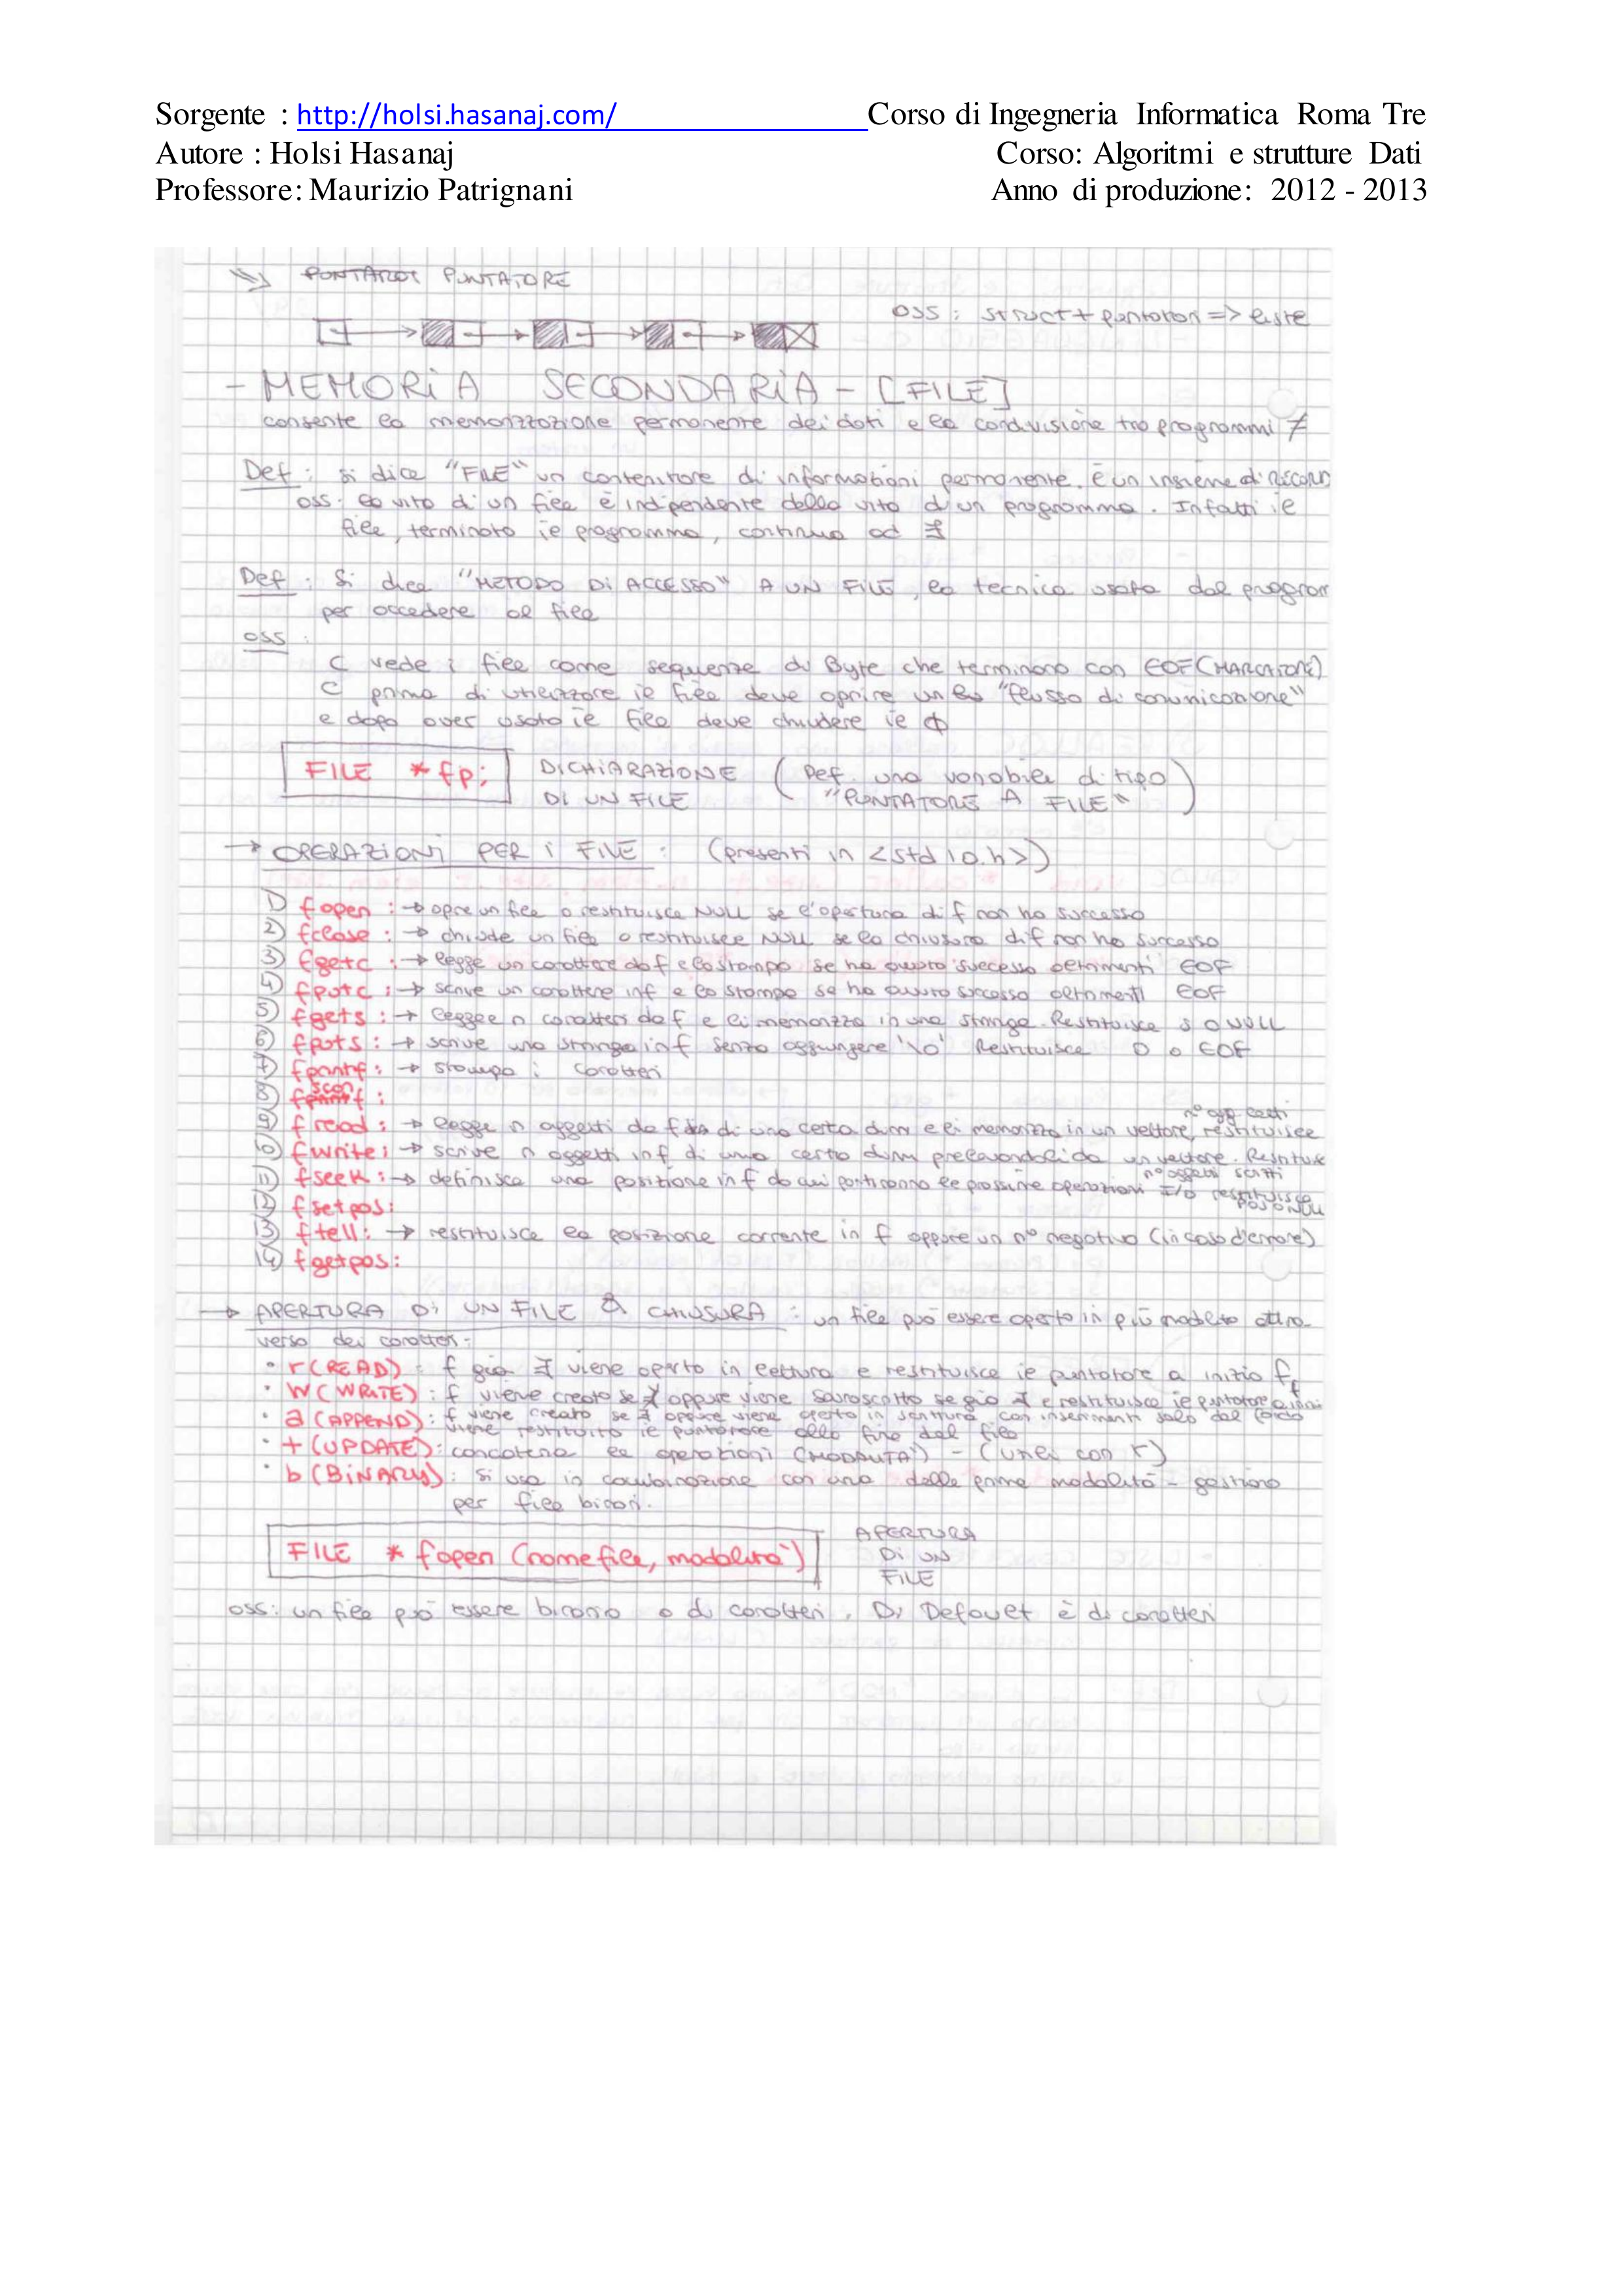 Sorgente : http://holsi.hasanaj.com/ Corso di Ingegneria Informatica Roma Tre
Autore : Holsi Hasanaj Corso: Algoritmi e strutture Dati
Professore: Maurizio Patrignani Anno di produzione: 2012 - 2013
PUNTATORE
OSS: struct + puntatori => liste
- MEMORIA SECONDARIA - [FILE]
consente la memorizzazione permanente dei dati e la condivisione tra programmi ≠
Def: si dice "FILE" un contenitore di informazioni permanente. È un insieme di record
oss: la vita di un file è indipendente dalla vita d'un programma. Infatti il
file, terminato il programma, continua ad ∃
Def: Si dice "METODO DI ACCESSO" A UN FILE, la tecnica usata dal program
per accedere al file
oss:
C vede i file come sequenze di Byte che terminano con EOF (MARCATORE)
C prima di utilizzare il file deve aprire un "flusso di comunicazione"
e dopo aver usato il file deve chiudere il ϕ
FILE *fp; DICHIARAZIONE DI UN FILE (Def. una variabile di tipo "PUNTATORE A FILE")
→ OPERAZIONI PER I FILE: (presenti in <stdio.h>)
1) fopen: → apre un file o restituisce NULL se l'apertura di f non ha successo
2) fclose: → chiude un file o restituisce NULL se la chiusura di f non ha successo
3) fgetc: → legge un carattere da f e lo stampa se ha avuto successo altrimenti EOF
4) fputc: → scrive un carattere in f e lo stampa se ha avuto successo altrimenti EOF
5) fgets: → legge n caratteri da f e li memorizza in una stringa. Restituisce s o NULL
6) fputs: → scrive una stringa in f senza aggiungere '\0' Restituisce 0 o EOF
7) fprintf: → stampa i caratteri
8) fscanf:
9) fread: → legge n oggetti da f di una certa dim e li memorizza in un vettore, restituisce n° ogg letti
10) fwrite: → scrive n oggetti in f di una certa dim prelevandoli da un vettore. Restituisce n° oggetti scritti
11) fseek: → definisce una posizione in f da cui partiranno le prossime operazioni I/O restituisce
12) fsetpos:
13) ftell: → restituisce la posizione corrente in f oppure un n° negativo (in caso d'errore)
14) fgetpos:
→ APERTURA DI UN FILE & CHIUSURA: un file può essere aperto in più modalità attra
verso dei caratteri:
• r (READ): f già ∃ viene aperto in lettura e restituisce il puntatore a inizio f
• W (WRITE): f viene creato se ∄ oppure viene sovrascritto se già ∃ e restituisce il puntatore a inizio f
• a (APPEND): f viene creato se ∄ oppure viene aperto in scrittura con inserimenti solo dal fondo
viene restituito il puntatore alla fine del file
• + (UPDATE): concatena le operazioni (MODALITA') - (usali con r)
• b (BINARY): si usa in combinazione con una delle prime modalità - gestione
per file binari.
FILE * fopen (nomefile, modalità) APERTURA DI UN FILE
oss: un file può essere binario o di caratteri. Di Default è di caratteri